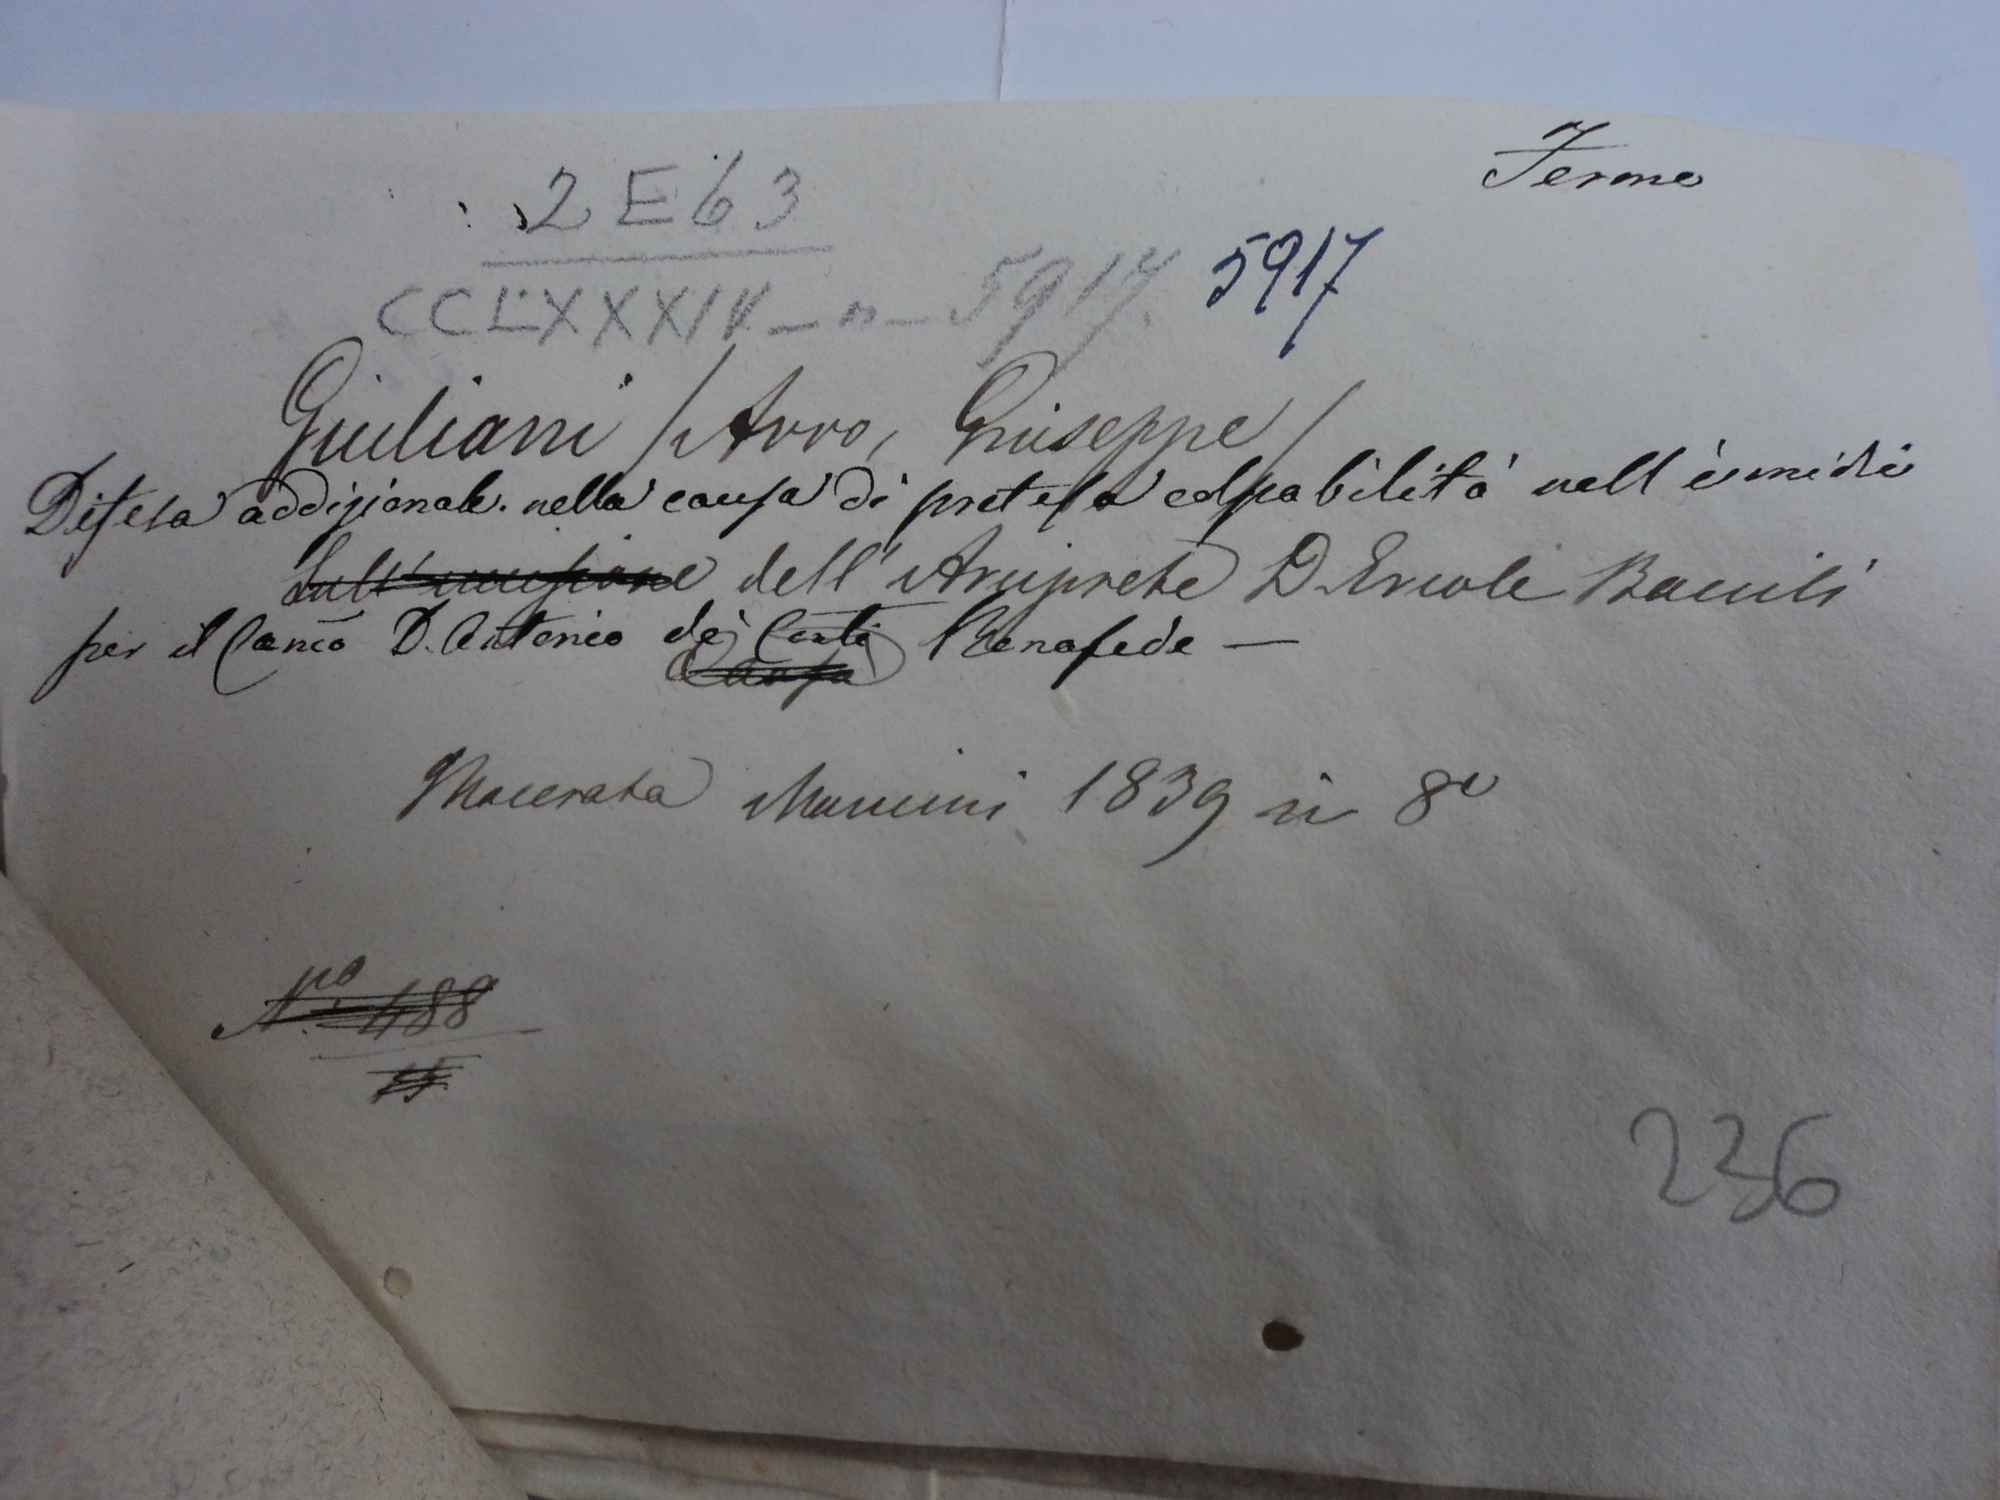 Fermo
2 E 63
CCLXXXIV - n - 5917. 5917
Giuliani / Avvo, Giuseppe /
Difesa addizionale nella causa di pretesa colpabilità nell'
dell'Arciprete D. Ercole
per il Canco D. Antonio dei Conti Bonafede —
Causa
Macerata Mancini 1839 in 8o
No. 488
15
236